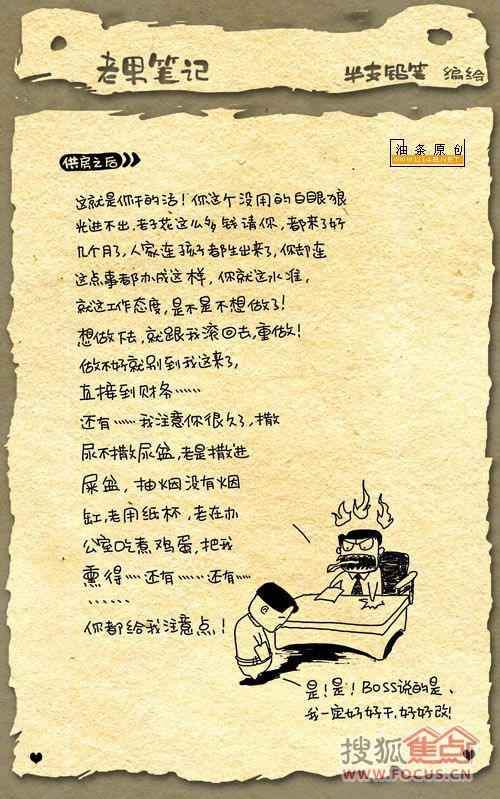 老果笔记
半支铅笔 编绘
油条原创
WWW.U148.NET
供房之后
这就是你干的活！你这个没用的白眼狼
光进不出，老子花这么多钱请你，都来了好
几个月了，人家连孩子都生出来了，你却连
这点事都办成这样，你就这水准，
就这工作态度，是不是不想做了！
想做下去，就跟我滚回去，重做！
做不好就别到我这来了，
直接到财务……
还有……我注意你很久了，撒
尿不撒尿盆，老是撒进
屎盆，抽烟没有烟
缸，老用纸杯，老在办
公室吃煮鸡蛋，把我
熏得……还有……还有……
……
你都给我注意点！
是！是！BOSS说的是、
我一定好好干，好好改！
搜狐焦点
WWW.FOCUS.CN